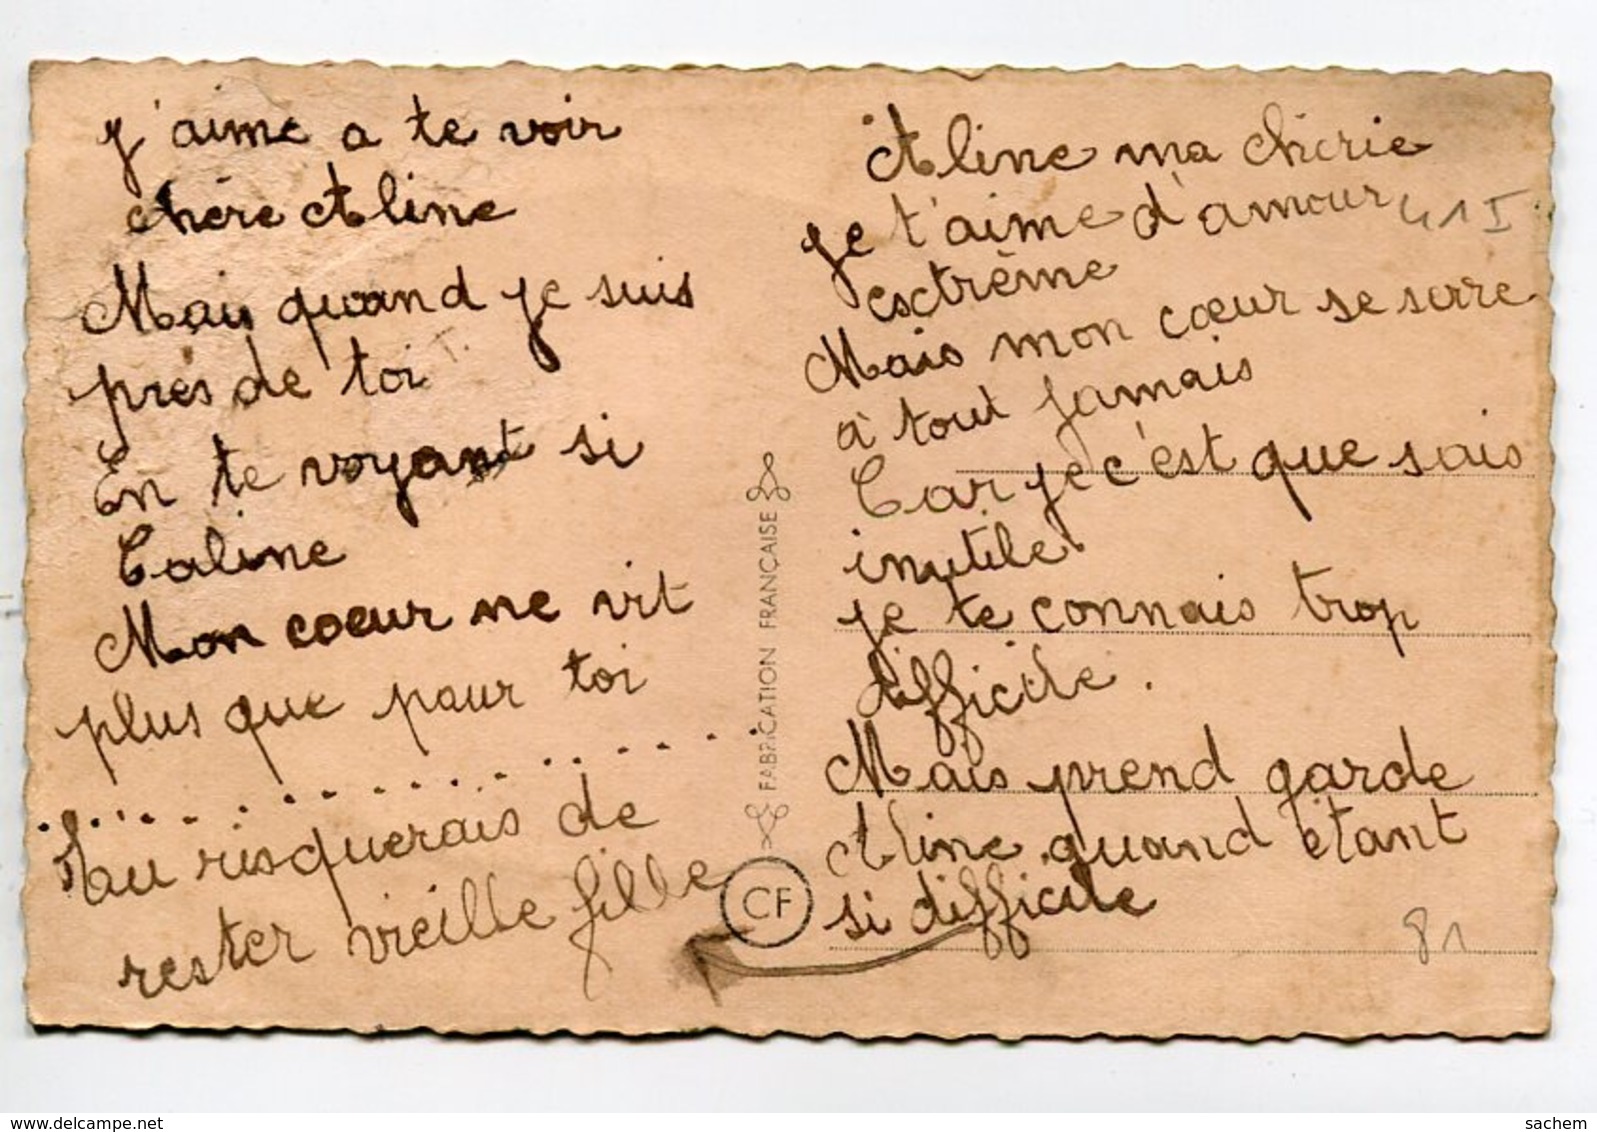 j'aime a te voir
chère Aline
Mais quand je suis
près de toi
En te voyant si
Caline
Mon coeur ne vit
plus que pour toi
Tu risquerais de
rester vieille fille
FABRICATION FRANÇAISE
CF
Aline ma chérie
je t'aime d'amour
esctrême
Mais mon cœur se serre
à tout jamais
Car je c'est que sais
inutile
je te connais trop
difficile.
Mais prend garde
Aline quand étant
si difficile
41 I
81
sachem